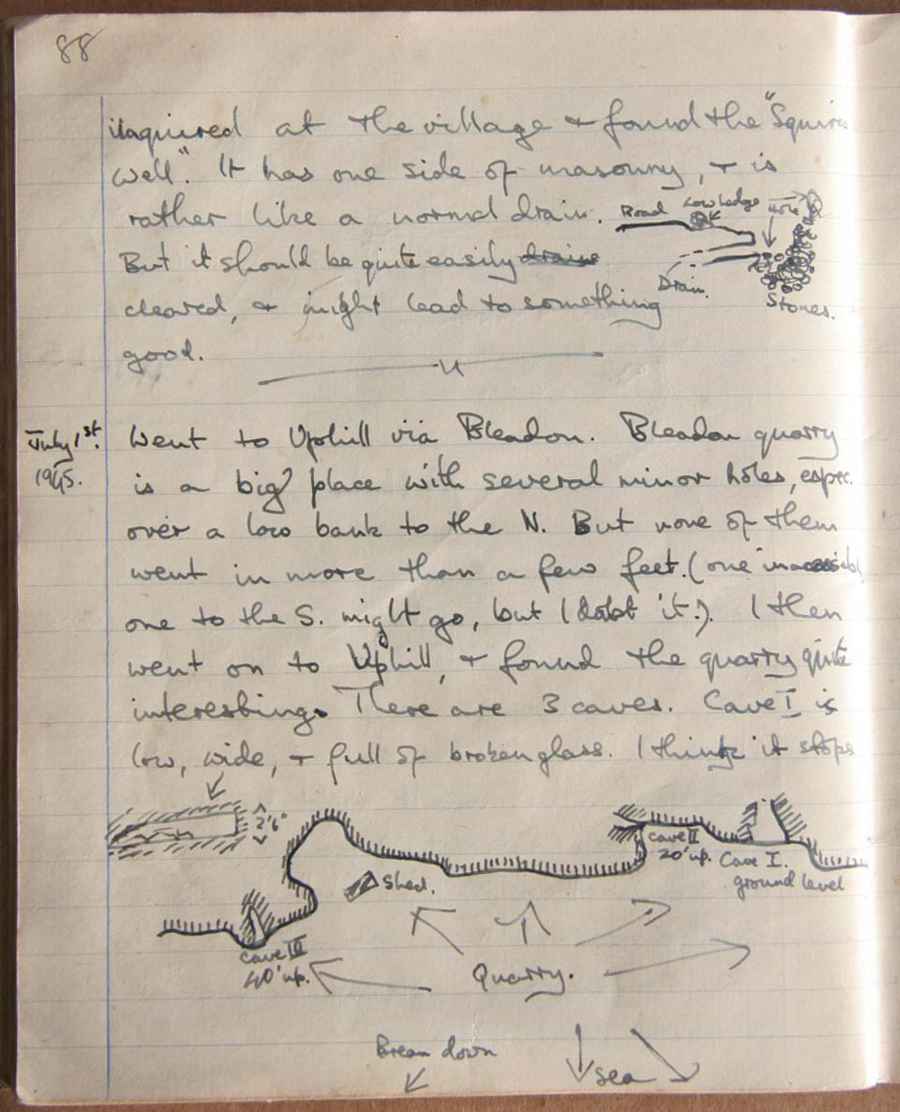 88
inquired at the village + found the "Squire
Well". It has one side of masonry, + is
rather like a normal drain.
Road Low ledge Hole
But it should be quite easily drain
Drain.
cleared, + might lead to something
Stones.
good.
July 1st.
1945.
Went to Uphill via Bleadon. Bleadon quarry
is a big place with several minor holes, espec.
over a low bank to the N. But none of them
went in more than a few feet. (one inaccessible
one to the S. might go, but I dobt it.). I then
went on to Uphill, + found the quarry quite
interesting. There are 3 caves. Cave I is
low, wide, + full of broken glass. I think it stops
2'6"
Shed.
Cave II
20' up.
Cave I.
ground level
Cave III
40' up.
Quarry.
Brean down
sea